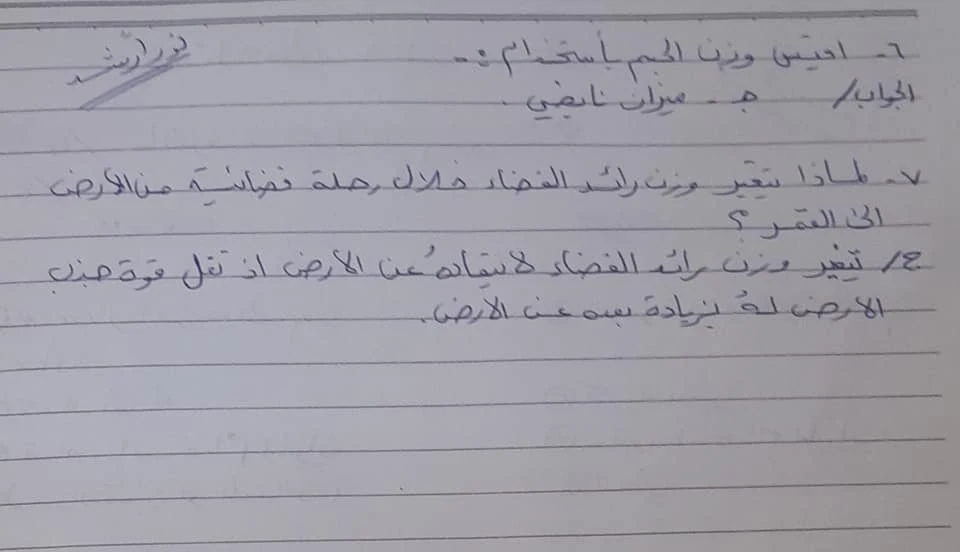 نور أرشد
٦- اقيس وزن الجسم بأستخدام :-
الجواب/ جـ - ميزان نابضي .
٧- لماذا يتغير وزن رائد الفضاء خلال رحلة فضائية من الأرض
الى القمر ؟
ج/ تتغير وزن رائد الفضاء لابتعادهُ عن الارض اذ تقل قوة جذب
الارض لهُ بزيادة بعده عن الارض.